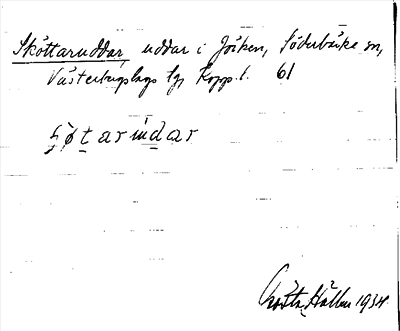 Sköttaruddar, uddar i Jöken, Söderbärke sn,
Västerbergslags tg, Kopp. l. 61
ʃø̀tarùdar
Gösta Hallm 1934.